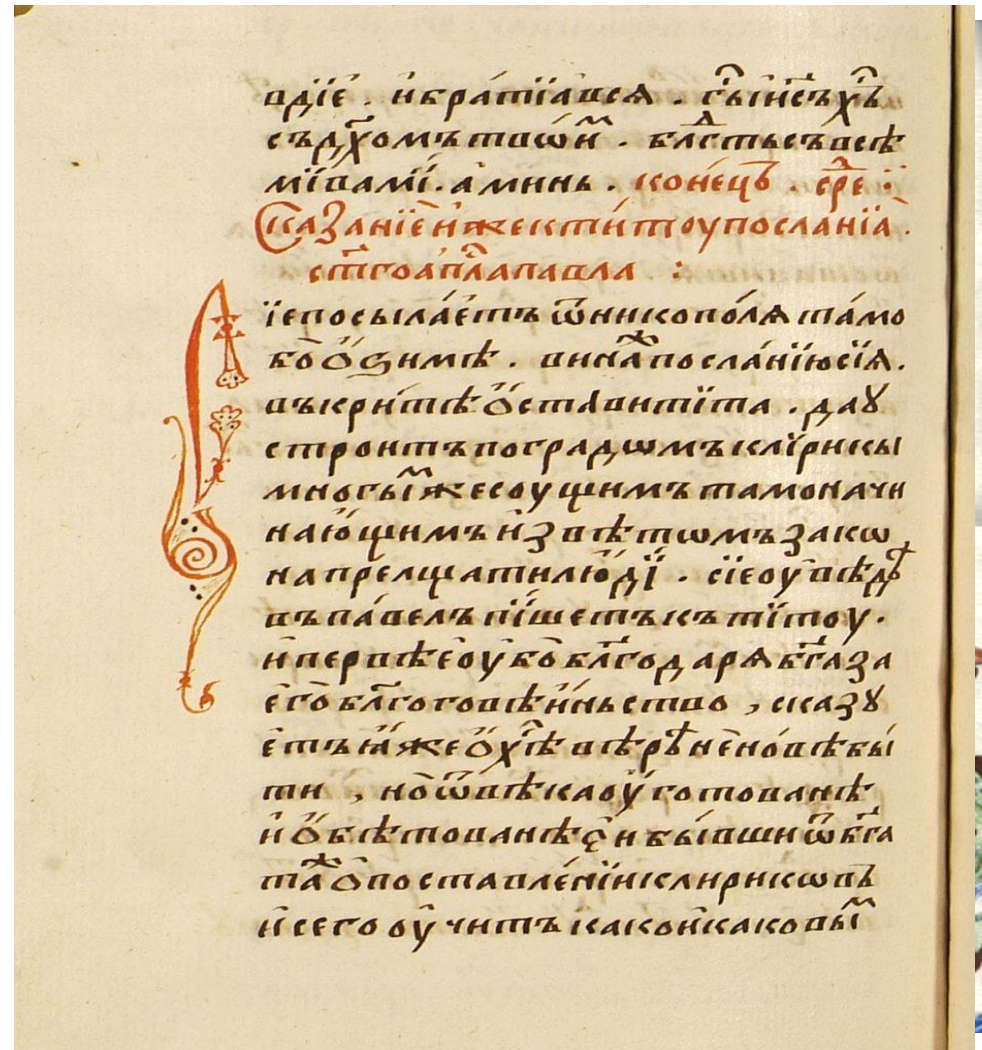 вдїе . и҆ бра́тїа всѧ . гь҃ і҆и҃съ х҃ъ
съ дх҃омъ твои́м . блгⷣтьсъ всѣ
мївамі́ . а́минь . коне́цъ . срⷣе :
Сказанїе и҆же к ти́тоу посланїа .
ст҃го ап҃ла павла :
Їе посыла́етъ ѿ никопо́лѧ та́мо
бо̀ ѻ҆ѕимѣ . вина̀ж посла́нїю сїѧ .
въ кри́тѣ ѻ҆стави тїта . да ꙋ
строитъ по градѡмъ клі́рикы
многы́мже соущимъ тамо начи
наю́щимъ и҆звѣтѡмъ зако
на прелщати лю́дїй . сїе оу҆вѣдⷪ
въ па́велъ пи́шетъ къ тїтоу .
и҆ первѣе оу҆бо бл҃годарѧ бг҃а за
е҆го̀ бл҃гоговѣи́ньство , сказꙋ
е҆тъ ꙗ҆́же ѻ҆ хѣ҃ вѣрѣ не но́вѣ бы́
ти , но̀ ѿ вѣка оу҆готованѣ
и҆ ѻ҆бѣтованѣ є҆и бы́вши ѿ бг҃а
та́ж ѻ҆ поставле́нїи клирикѡвъ
и҆ сего оу҆читъ како и҆ каковы́м